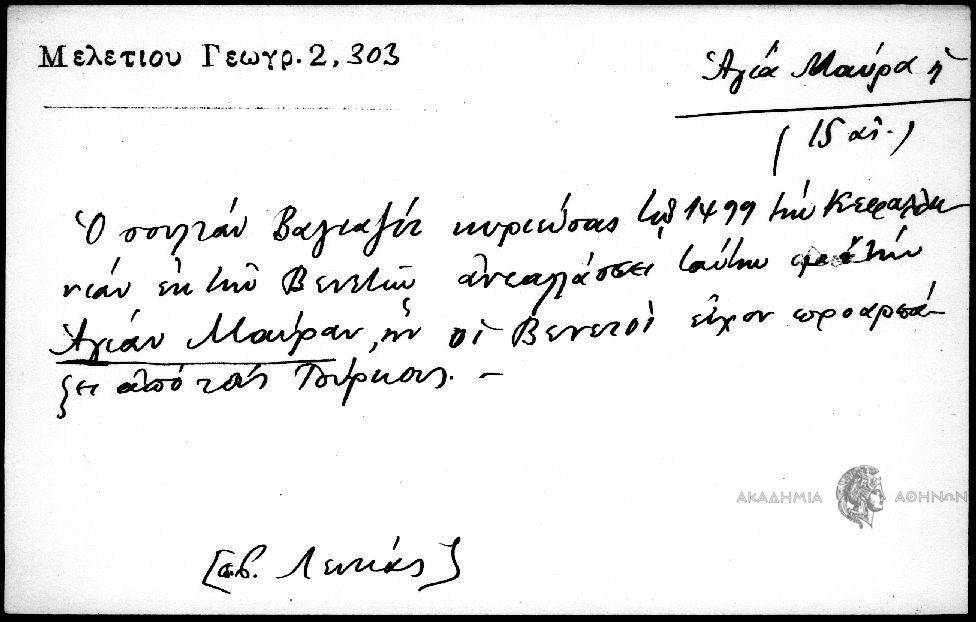 Μελετιου Γεωγρ. 2, 303
Ἁγία Μαύρα ἡ
(15 αἰ.)
Ὁ σουλτάν Βαγιαζίτ κυριεύσας τῷ 1499 τήν Κεφαλλη-
νίαν ἐκ τῶν Βενετῶν ἀνταλλάσσει ταύτην μέ τήν
Ἁγίαν Μαύραν, ἥν οἱ Βενετοί εἶχον προαρπά-
ξει ἀπό τούς Τούρκους. –
ΑΚΑΔΗΜΙΑ ΑΘΗΝΩΝ
[σβ. Λευκάς]